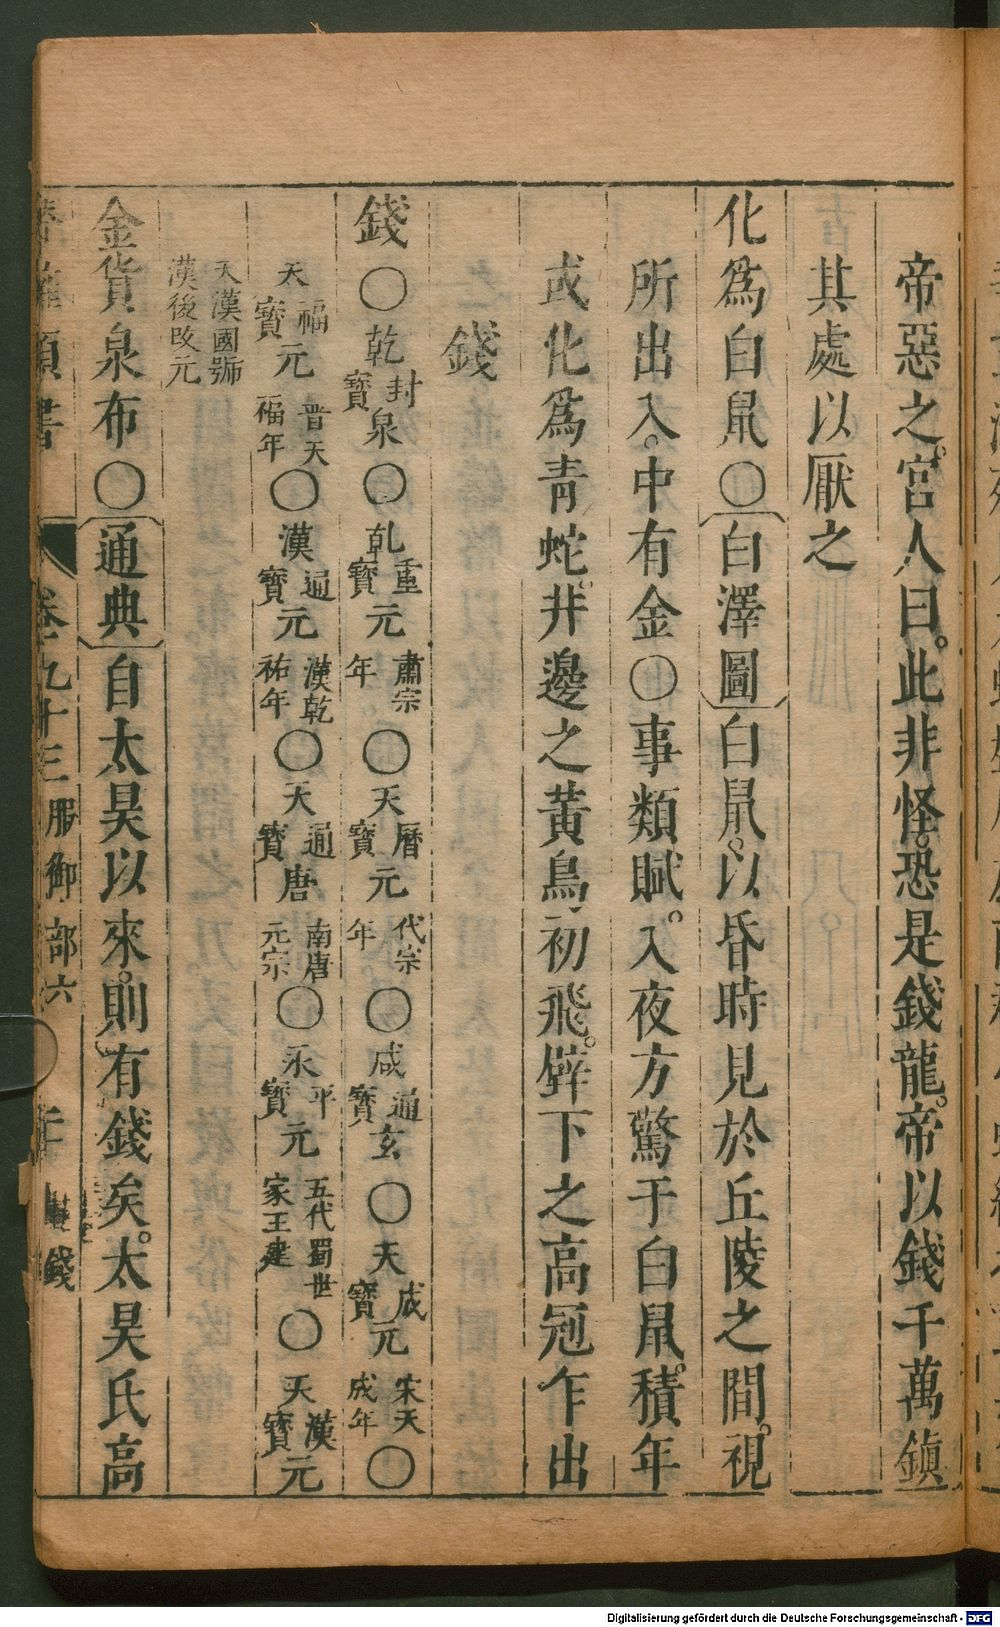 帝惡之宮人曰此非怪恐是錢龍帝以錢千萬鎮
其處以厭之
化爲白鼠〇白澤圖白鼠以昏時見於丘陵之間視
所出入中有金〇事類賦入夜方驚于白鼠積年
或化爲青蛇井邊之黃鳥初飛壁下之高冠乍出
錢
錢〇乾封泉寶〇乹重元寶肅宗年〇天曆元寶代宗年〇咸通玄寶〇天成元寶宋天成年〇
天福元寶晉天福年〇漢通元寶漢乾祐年〇天通唐寶南唐元宗〇永平元寶五代蜀世家王建〇天漢元寶
天漢國號
漢後改元
金貨泉布〇通典自太昊以來則有錢矣太昊氏高
類書 卷九十三 服御部六 錢
Digitalisierung gefördert durch die Deutsche Forschungsgemeinschaft - DFG